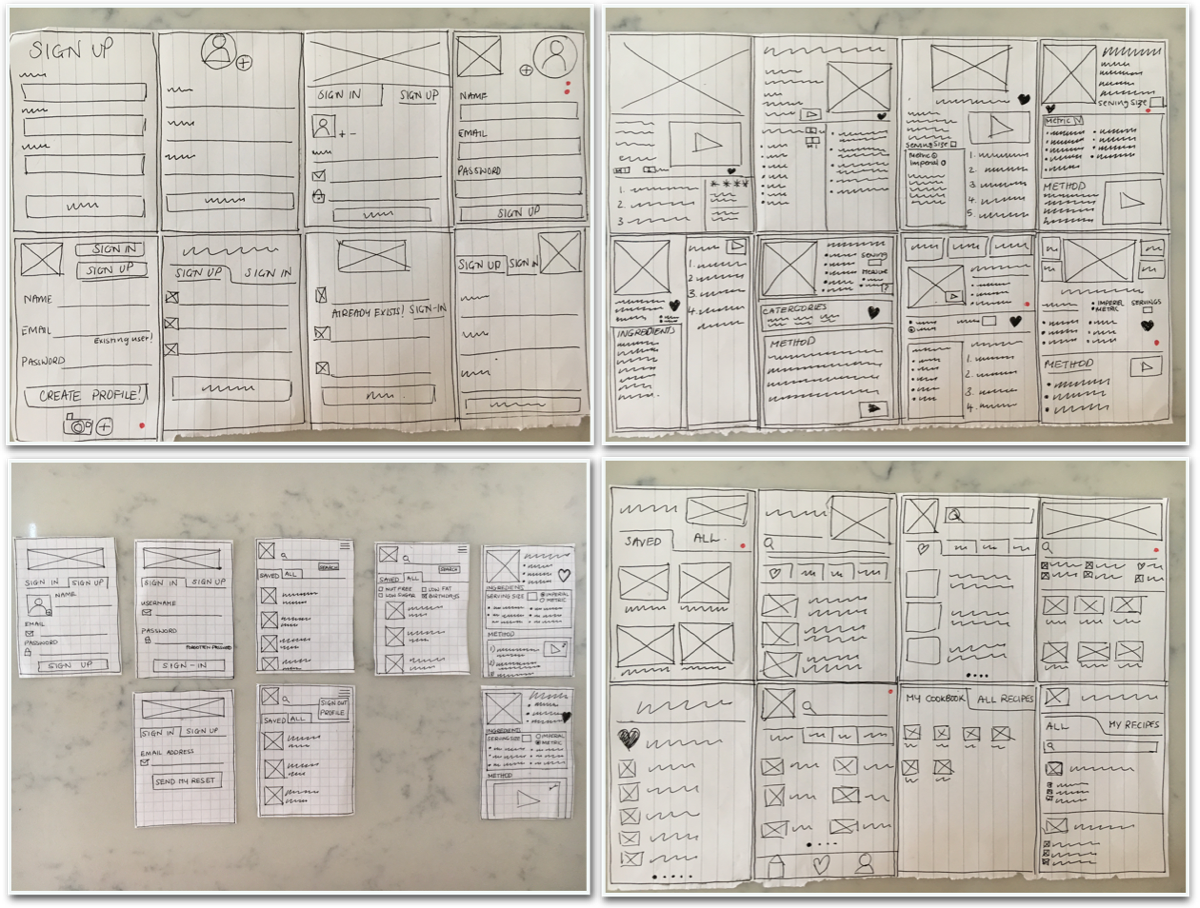 SIGN UP
SIGN IN SIGN UP
NAME
EMAIL
PASSWORD
SIGN UP
SIGN IN
SIGN UP
NAME
EMAIL
Existing user!
PASSWORD
CREATE PROFILE!
SIGN UP SIGN IN
ALREADY EXISTS! SIGN-IN
SIGN UP SIGN IN
1.
2.
3.
SERVING SIZE
Metric
Imperial
1.
2.
3.
4.
5.
SERVING SIZE
METRIC
METHOD
INGREDIENTS
1.
2.
3.
4.
SERVING
METRIC
CATERGORIES
METHOD
1.
2.
3.
4.
IMPEREL
METRIC
SERVINGS
METHOD
SIGN IN SIGN UP
NAME
EMAIL
PASSWORD
SIGN UP
SIGN IN SIGN UP
USERNAME
PASSWORD
FORGOTTEN PASSWORD
SIGN-IN
SEARCH
SAVED ALL
SEARCH
SAVED ALL
NUT FREE LOW FAT
LOW SUGAR BIRTHDAYS
INGREDIENTS
SERVING SIZE IMPERIAL
METRIC
METHOD
1)
2)
SIGN IN SIGN UP
EMAIL ADDRESS
SEND MY RESET
SIGN OUT
PROFILE
SAVED ALL
INGREDIENTS
SERVING SIZE IMPERIAL
METRIC
METHOD
SAVED ALL
MY COOKBOOK ALL RECIPES
ALL MY RECIPES